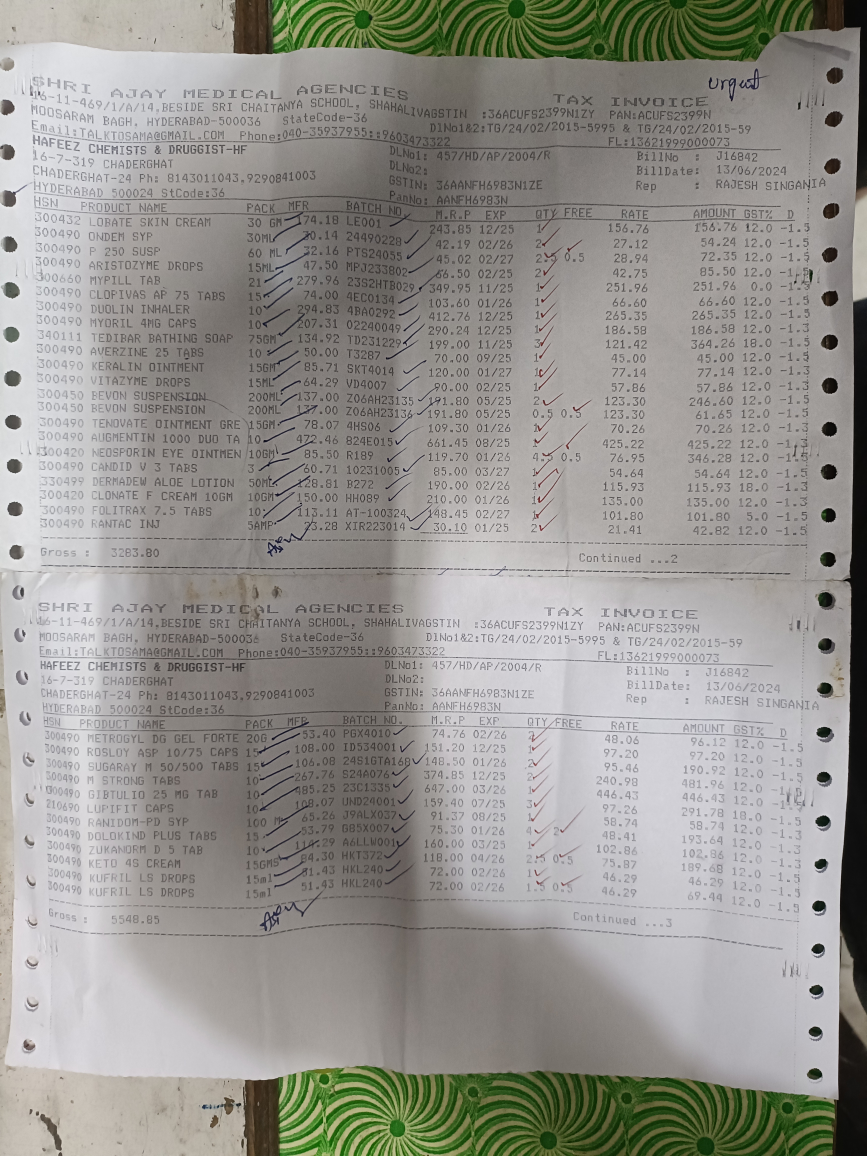 urgent
SHRI AJAY MEDICAL AGENCIES TAX INVOICE
16-11-469/1/A/14,BESIDE SRI CHAITANYA SCHOOL, SHAHALIVAGSTIN :36ACUFS2399N1ZY PAN:ACUFS2399N
MOOSARAM BAGH, HYDERABAD-500036 StateCode-36 DlNo1&2:TG/24/02/2015-5995 & TG/24/02/2015-59
Email:TALKTOSAMA@GMAIL.COM Phone:040-35937955::9603473322 FL:13621999000073
HAFEEZ CHEMISTS & DRUGGIST-HF DLNo1: 457/HD/AP/2004/R BillNo : J16842
16-7-319 CHADERGHAT DLNo2: BillDate: 13/06/2024
CHADERGHAT-24 Ph: 8143011043,9290841003 GSTIN: 36AANFH6983N1ZE Rep : RAJESH SINGANIA
HYDERABAD 500024 StCode:36 PanNo: AANFH6983N
HSN PRODUCT NAME PACK MFR BATCH NO. M.R.P EXP QTY FREE RATE AMOUNT GST% D
300432 LOBATE SKIN CREAM 30 GM 174.18 LE001 243.85 12/25 1 156.76 156.76 12.0 -1.5
300490 ONDEM SYP 30ML 30.14 24490228 42.19 02/26 2 27.12 54.24 12.0 -1.5
300490 P 250 SUSP 60 ML 32.16 PTS24055 45.02 02/27 2.5 0.5 28.94 72.35 12.0 -1.5
300490 ARISTOZYME DROPS 15ML 47.50 MPJ233802 66.50 02/25 2 42.75 85.50 12.0
300660 MYPILL TAB 21 279.96 23S2HTB029 349.95 11/25 1 251.96 251.96 0.0 -1.3
300490 CLOPIVAS AP 75 TABS 15 74.00 4EC0134 103.60 01/26 1 66.60 66.60 12.0 -1.3
300490 DUOLIN INHALER 10 294.83 4BA0292 412.76 12/25 1 265.35 265.35 12.0 -1.5
300490 MYORIL 4MG CAPS 10 207.31 02240049 290.24 12/25 1 186.58 186.58 12.0 -1.3
340111 TEDIBAR BATHING SOAP 75GM 134.92 TD231229 199.00 11/25 3 121.42 364.26 18.0 -1.5
300490 AVERZINE 25 TABS 10 50.00 T3287 70.00 09/25 1 45.00 45.00 12.0 -1.3
300490 KERALIN OINTMENT 15GM 85.71 SKT4014 120.00 01/27 1 77.14 77.14 12.0 -1.3
300490 VITAZYME DROPS 15ML 64.29 VD4007 90.00 02/25 1 57.86 57.86 12.0 -1.3
300450 BEVON SUSPENSION 200ML 137.00 Z06AH23135 191.80 05/25 2 123.30 246.60 12.0 -1.5
300450 BEVON SUSPENSION 200ML 137.00 Z06AH23136 191.80 05/25 0.5 0.5 123.30 61.65 12.0 -1.5
300490 TENOVATE OINTMENT GRE 15GM 78.07 4HS06 109.30 01/26 1 70.26 70.26 12.0 -1.3
300490 AUGMENTIN 1000 DUO TA 10 472.46 824E015 661.45 08/25 1 425.22 425.22 12.0 -1.3
300420 NEOSPORIN EYE OINTMEN 10GM 85.50 R189 119.70 01/26 4.5 0.5 76.95 346.28 12.0 -1.5
300490 CANDID V 3 TABS 3 60.71 10231005 85.00 03/27 1 54.64 54.64 12.0 -1.3
330499 DERMADEW ALOE LOTION 50ML 128.81 B272 190.00 02/26 1 115.93 115.93 18.0 -1.3
300420 CLONATE F CREAM 10GM 10GM 150.00 HH089 210.00 01/26 1 135.00 135.00 12.0 -1.3
300490 FOLITRAX 7.5 TABS 10 113.11 AT-100324 148.45 02/27 1 101.80 101.80 5.0 -1.5
300490 RANTAC INJ 5AMP 23.28 XIR223014 30.10 01/25 2 21.41 42.82 12.0 -1.5
Gross : 3283.80 Continued ...2
SHRI AJAY MEDICAL AGENCIES TAX INVOICE
16-11-469/1/A/14,BESIDE SRI CHAITANYA SCHOOL, SHAHALIVAGSTIN :36ACUFS2399N1ZY PAN:ACUFS2399N
MOOSARAM BAGH, HYDERABAD-500036 StateCode-36 DlNo1&2:TG/24/02/2015-5995 & TG/24/02/2015-59
Email:TALKTOSAMA@GMAIL.COM Phone:040-35937955::9603473322 FL:13621999000073
HAFEEZ CHEMISTS & DRUGGIST-HF DLNo1: 457/HD/AP/2004/R BillNo : J16842
16-7-319 CHADERGHAT DLNo2: BillDate: 13/06/2024
CHADERGHAT-24 Ph: 8143011043,9290841003 GSTIN: 36AANFH6983N1ZE Rep : RAJESH SINGANIA
HYDERABAD 500024 StCode:36 PanNo: AANFH6983N
HSN PRODUCT NAME PACK MFR BATCH NO. M.R.P EXP QTY FREE RATE AMOUNT GST% D
300490 METROGYL DG GEL FORTE 20G 53.40 PGX4010 74.76 02/26 2 48.06 96.12 12.0 -1.5
300490 ROSLOY ASP 10/75 CAPS 15 108.00 ID534001 151.20 12/25 1 97.20 97.20 12.0 -1.5
300490 SUGARAY M 50/500 TABS 15 106.08 24S1GTA168 148.50 01/26 2 95.46 190.92 12.0 -1.5
300490 M STRONG TABS 10 267.76 S24A076 374.85 12/25 2 240.98 481.96 12.0 -1.5
300490 GIBTULIO 25 MG TAB 10 485.25 23C1335 647.00 03/26 1 446.43 446.43 12.0 -1.3
210690 LUPIFIT CAPS 10 108.07 UND24001 159.40 07/25 3 97.26 291.78 18.0 -1.5
300490 RANIDOM-PD SYP 100 ML 65.26 J9ALX037 91.37 08/25 1 58.74 58.74 12.0 -1.3
300490 DOLOKIND PLUS TABS 15 53.79 GB5X007 75.30 01/26 4 2 48.41 193.64 12.0 -1.5
300490 ZUKANORM D 5 TAB 10 114.29 A6LLW001 160.00 03/25 1 102.86 102.86 12.0 -1.3
300490 KETO 4S CREAM 15GMS 84.30 HKT372 118.00 04/26 2.5 0.5 75.87 189.68 12.0 -1.5
300490 KUFRIL LS DROPS 15ml 51.43 HKL240 72.00 02/26 1 46.29 46.29 12.0 -1.3
300490 KUFRIL LS DROPS 15ml 51.43 HKL240 72.00 02/26 1.5 0.5 46.29 69.44 12.0 -1.5
Gross : 5548.85 Continued ...3